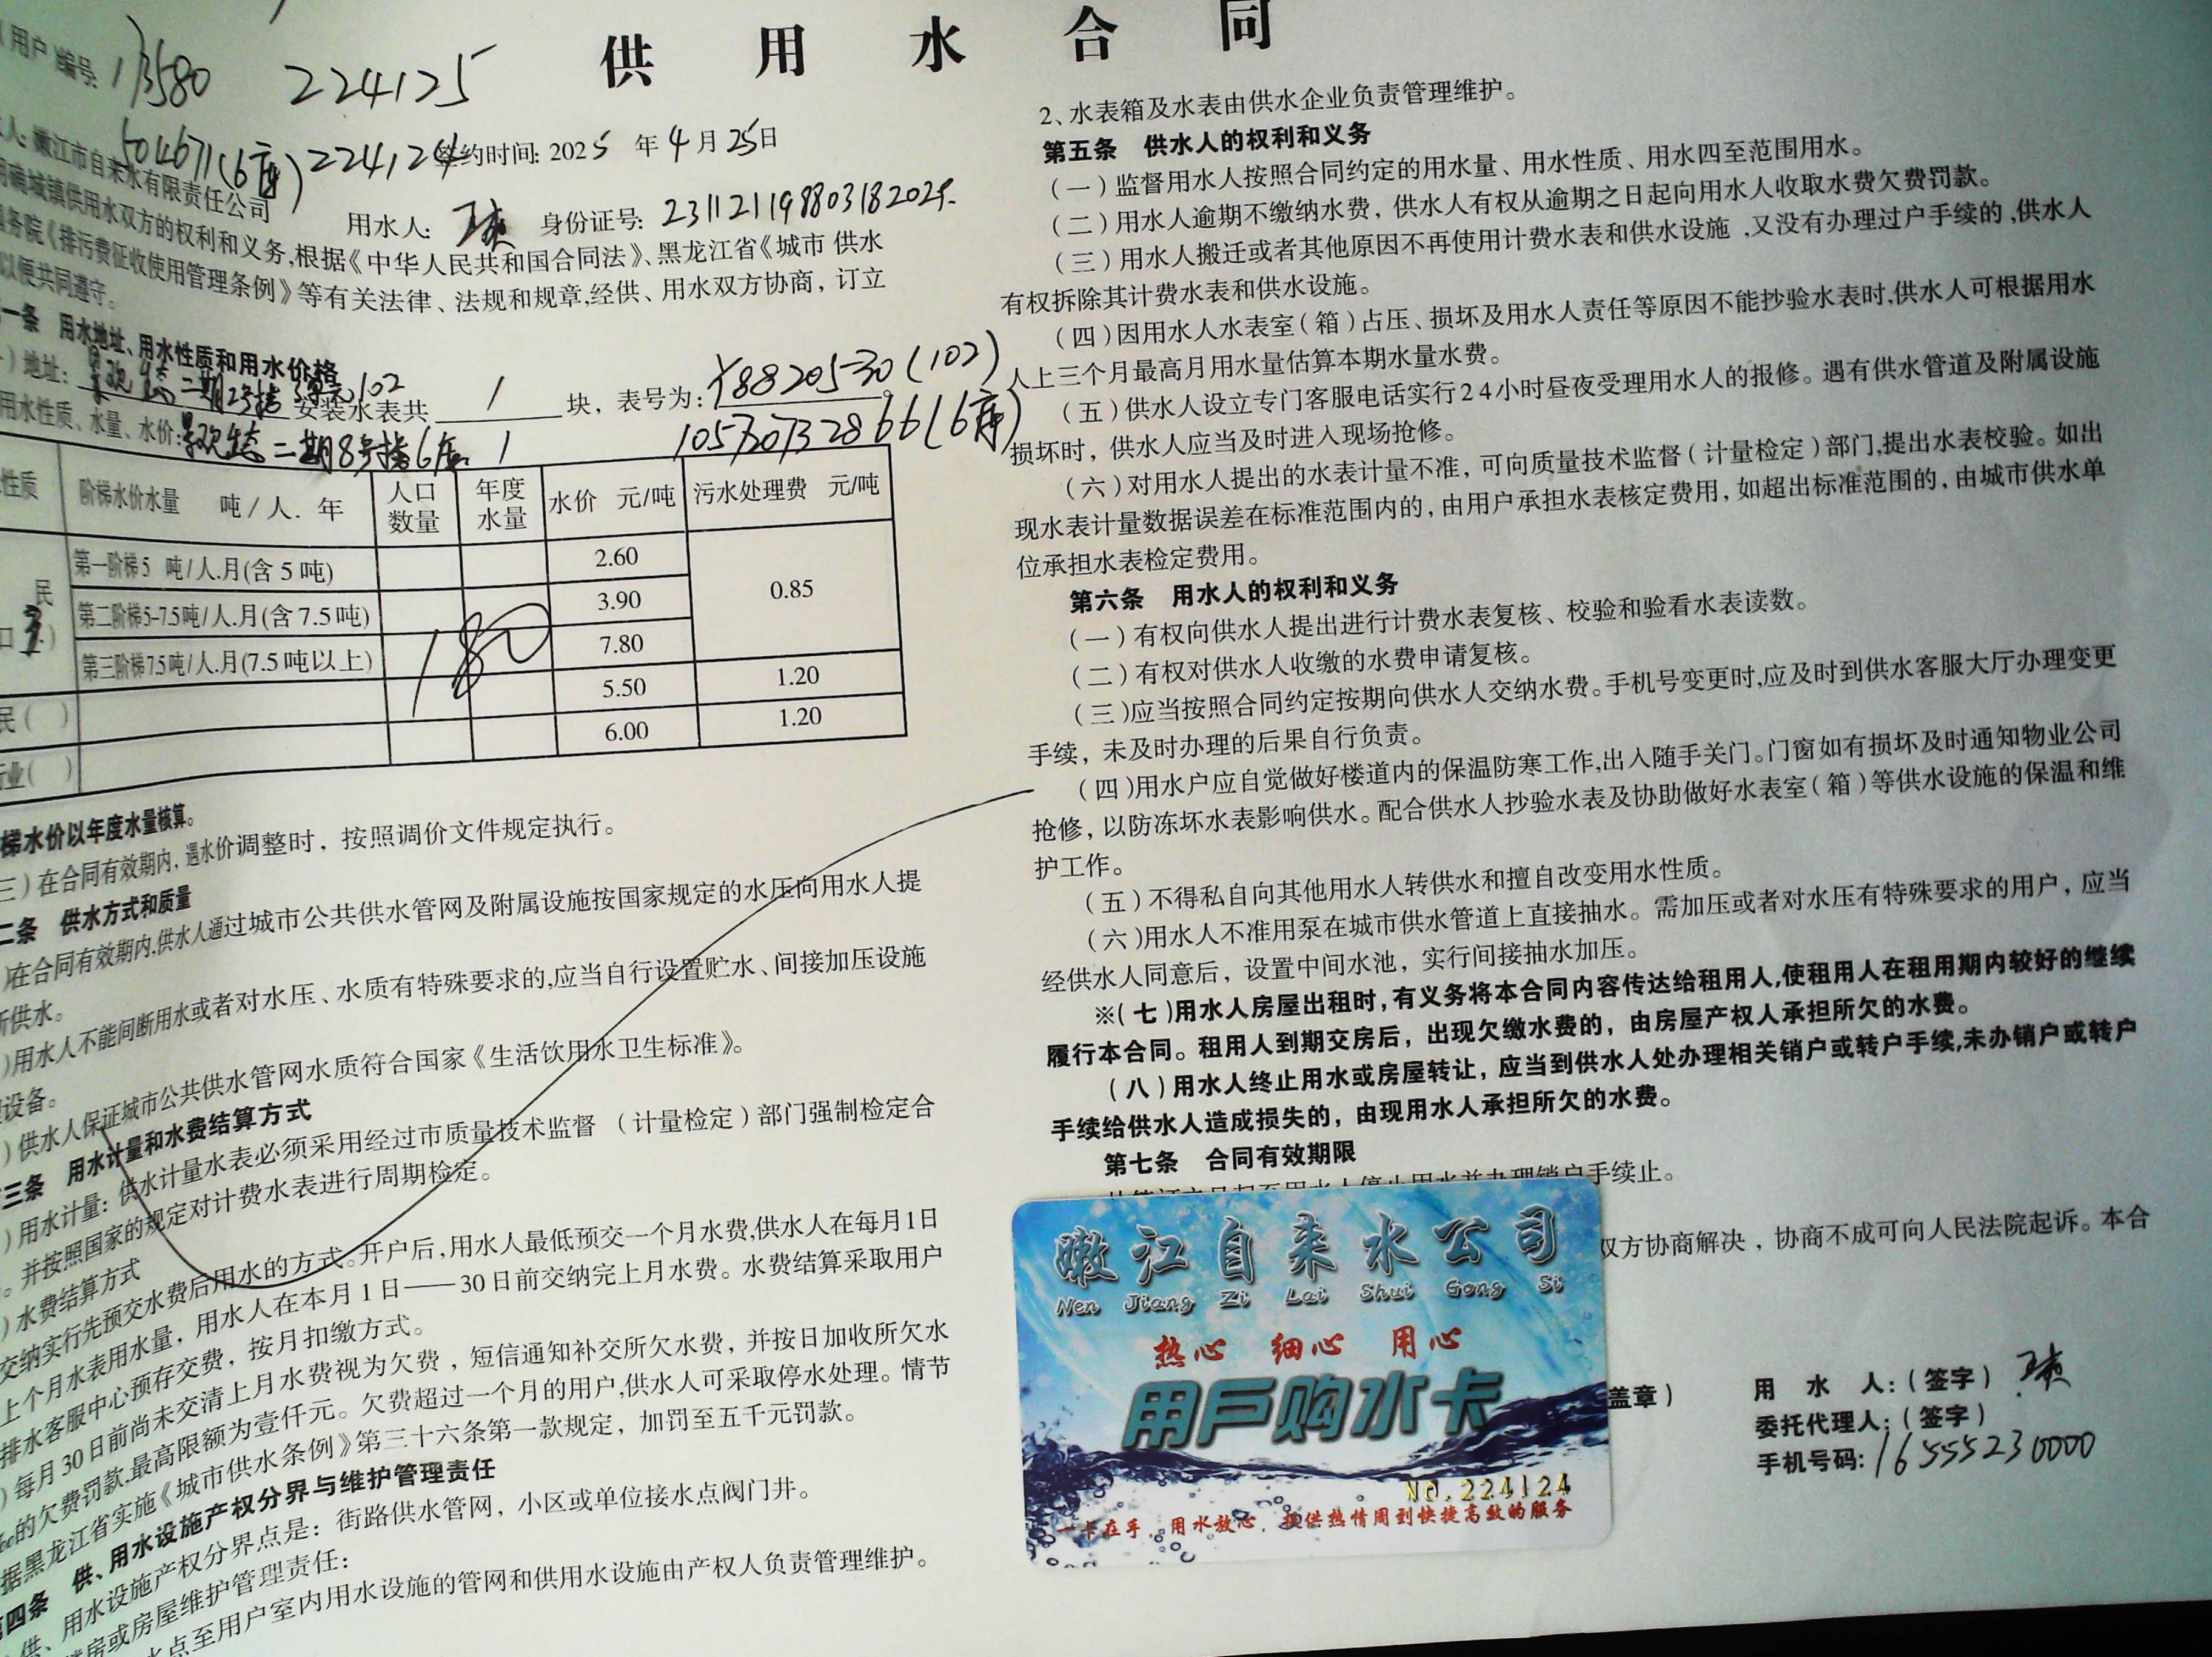 供用水合同
用户编号: 113580 224125
504671(6库) 224124
签约时间: 2025 年 4 月 25 日
人: 嫩江市自来水有限责任公司
用水人: 身份证号: 231121198803182024
明确城镇供用水双方的权利和义务,根据《中华人民共和国合同法》、黑龙江省《城市供水
务院《排污费征收使用管理条例》等有关法律、法规和规章,经供、用水双方协商，订立
以便共同遵守。
一条 用水地址、用水性质和用水价格
)地址: 景观生态二期2号楼3单元102 安装水表共 1 块，表号为: Y8820530(102)
用水性质、水量、水价: 景观生态二期8号楼6库 1 105730732866(6库)
性质 阶梯水价水量 吨/人. 年 人口数量 年度水量 水价 元/吨 污水处理费 元/吨
民 第一阶梯5 吨/人.月(含 5 吨) 2.60 0.85
口3) 第二阶梯5-7.5吨/人.月(含 7.5 吨) 3.90
第三阶梯7.5吨/人.月(7.5 吨以上) 180 7.80
民( ) 5.50 1.20
业( ) 6.00 1.20
梯水价以年度水量核算。
三）在合同有效期内，遇水价调整时，按照调价文件规定执行。
二条 供水方式和质量
)在合同有效期内,供水人通过城市公共供水管网及附属设施按国家规定的水压向用水人提
供水。
)用水人不能间断用水或者对水压、水质有特殊要求的,应当自行设置贮水、间接加压设施
设备。
)供水人保证城市公共供水管网水质符合国家《生活饮用水卫生标准》。
三条 用水计量和水费结算方式
)用水计量：供水计量水表必须采用经过市质量技术监督（计量检定）部门强制检定合
。并按照国家的规定对计费水表进行周期检定。
)水费结算方式
交纳实行先预交水费后用水的方式。开户后,用水人最低预交一个月水费,供水人在每月1日
上个月水表用水量，用水人在本月 1 日——30 日前交纳完上月水费。水费结算采取用户
排水客服中心预存交费，按月扣缴方式。
)每月 30 日前尚未交清上月水费视为欠费，短信通知补交所欠水费，并按日加收所欠水
‰的欠费罚款,最高限额为壹仟元。欠费超过一个月的用户,供水人可采取停水处理。情节
据黑龙江省实施《城市供水条例》第三十六条第一款规定，加罚至五千元罚款。
四条 供、用水设施产权分界与维护管理责任
供、用水设施产权分界点是：街路供水管网，小区或单位接水点阀门井。
房或房屋维护管理责任：
水点至用户室内用水设施的管网和供用水设施由产权人负责管理维护。
2、水表箱及水表由供水企业负责管理维护。
第五条 供水人的权利和义务
（一）监督用水人按照合同约定的用水量、用水性质、用水四至范围用水。
（二）用水人逾期不缴纳水费，供水人有权从逾期之日起向用水人收取水费欠费罚款。
（三）用水人搬迁或者其他原因不再使用计费水表和供水设施，又没有办理过户手续的,供水人
有权拆除其计费水表和供水设施。
（四）因用水人水表室（箱）占压、损坏及用水人责任等原因不能抄验水表时,供水人可根据用水
人上三个月最高月用水量估算本期水量水费。
（五）供水人设立专门客服电话实行24小时昼夜受理用水人的报修。遇有供水管道及附属设施
损坏时，供水人应当及时进入现场抢修。
（六）对用水人提出的水表计量不准，可向质量技术监督（计量检定）部门,提出水表校验。如出
现水表计量数据误差在标准范围内的，由用户承担水表核定费用，如超出标准范围的，由城市供水单
位承担水表检定费用。
第六条 用水人的权利和义务
（一）有权向供水人提出进行计费水表复核、校验和验看水表读数。
（二）有权对供水人收缴的水费申请复核。
（三）应当按照合同约定按期向供水人交纳水费。手机号变更时,应及时到供水客服大厅办理变更
手续，未及时办理的后果自行负责。
（四）用水户应自觉做好楼道内的保温防寒工作,出入随手关门。门窗如有损坏及时通知物业公司
抢修，以防冻坏水表影响供水。配合供水人抄验水表及协助做好水表室（箱）等供水设施的保温和维
护工作。
（五）不得私自向其他用水人转供水和擅自改变用水性质。
（六）用水人不准用泵在城市供水管道上直接抽水。需加压或者对水压有特殊要求的用户，应当
经供水人同意后，设置中间水池，实行间接抽水加压。
※（七）用水人房屋出租时,有义务将本合同内容传达给租用人,使租用人在租用期内较好的继续
履行本合同。租用人到期交房后，出现欠缴水费的，由房屋产权人承担所欠的水费。
（八）用水人终止用水或房屋转让，应当到供水人处办理相关销户或转户手续,未办销户或转户
手续给供水人造成损失的，由现用水人承担所欠的水费。
第七条 合同有效期限
手续止。
双方协商解决，协商不成可向人民法院起诉。本合
盖章）
用 水 人:（签字）
委托代理人:（签字）
手机号码: 16555230000
嫩江自来水公司
Nen Jiang Zi Lai Shui Gong Si
热心 细心 用心
用户购水卡
NO.224124
一卡在手，用水放心，提供热情周到快捷高效的服务